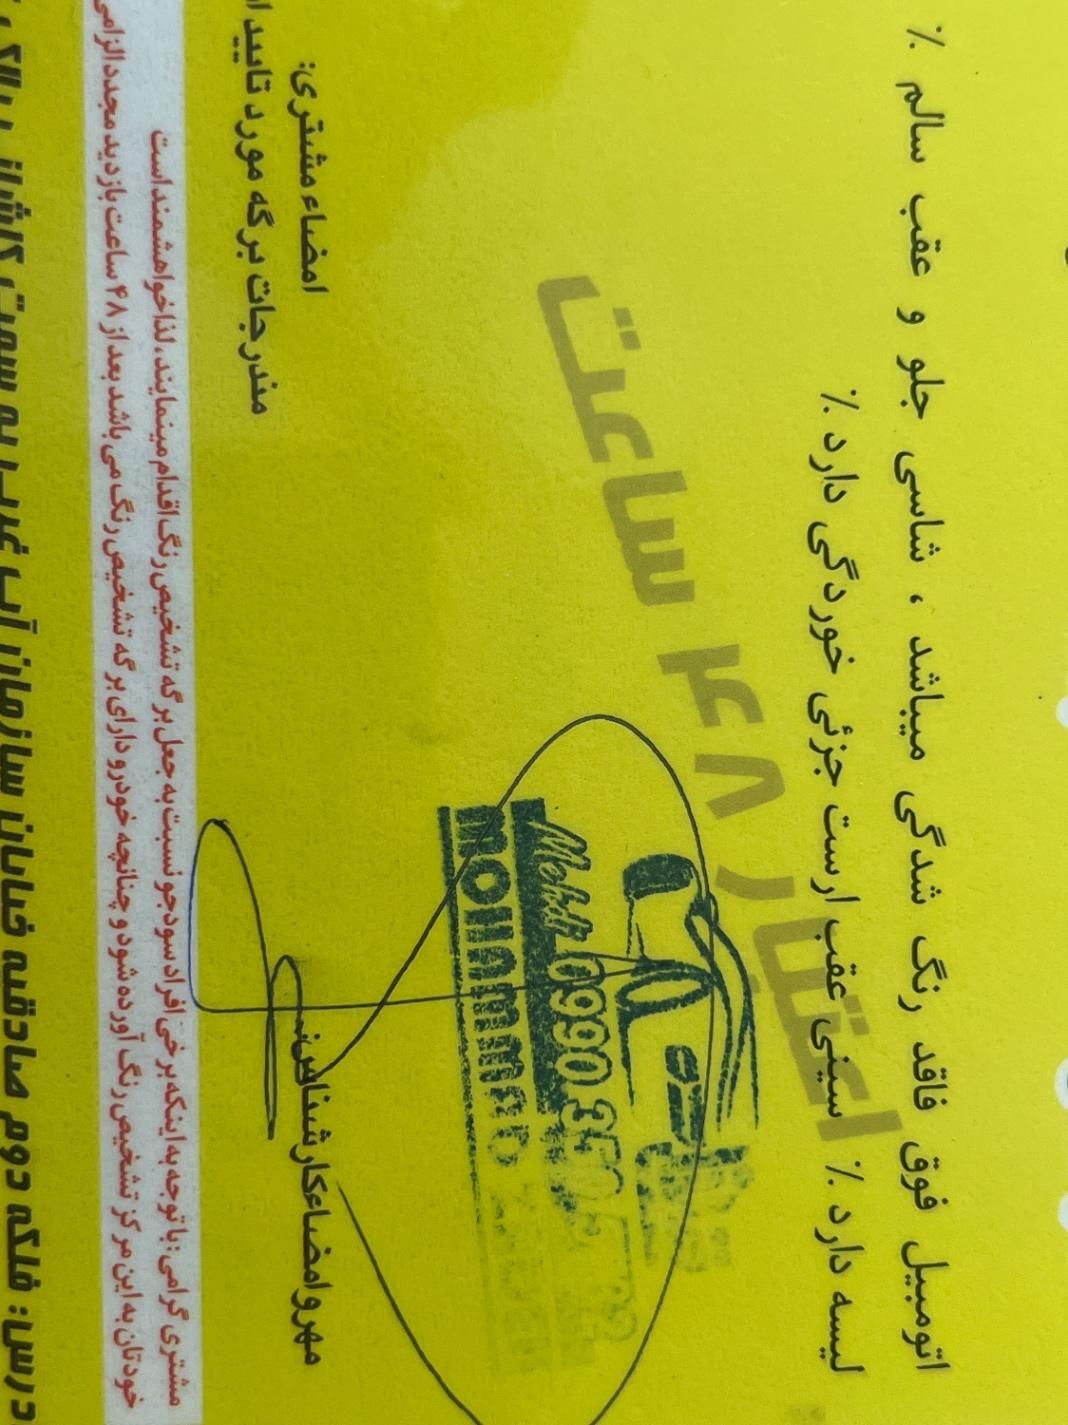 اتومبیل فوق فاقد رنگ شدگی میباشد ، شاسی جلو و عقب سالم ٪
لیسه دارد ٪ سینی عقب ارست جزئی خوردگی دارد ٪
اعتبار ۴۸ ساعت
Mohd 0990 350
mohammad
مهر و امضاء کارشناس:
امضاء مشتری:
مندرجات برگه مورد تایید
مشتری گرامی: با توجه به اینکه برخی افراد سودجو نسبت به جعل برگه تشخیص رنگ اقدام مینمایند، لذا خواهشمند است
خودتان به این مرکز تشخیص رنگ آورده شود و چنانچه خودرو دارای برگه تشخیص رنگ می باشد بعد از ۴۸ ساعت بازدید مجدد الزامی
درس: فلکه دوم صادقیه خیابان سازمان آب غربی به سمت